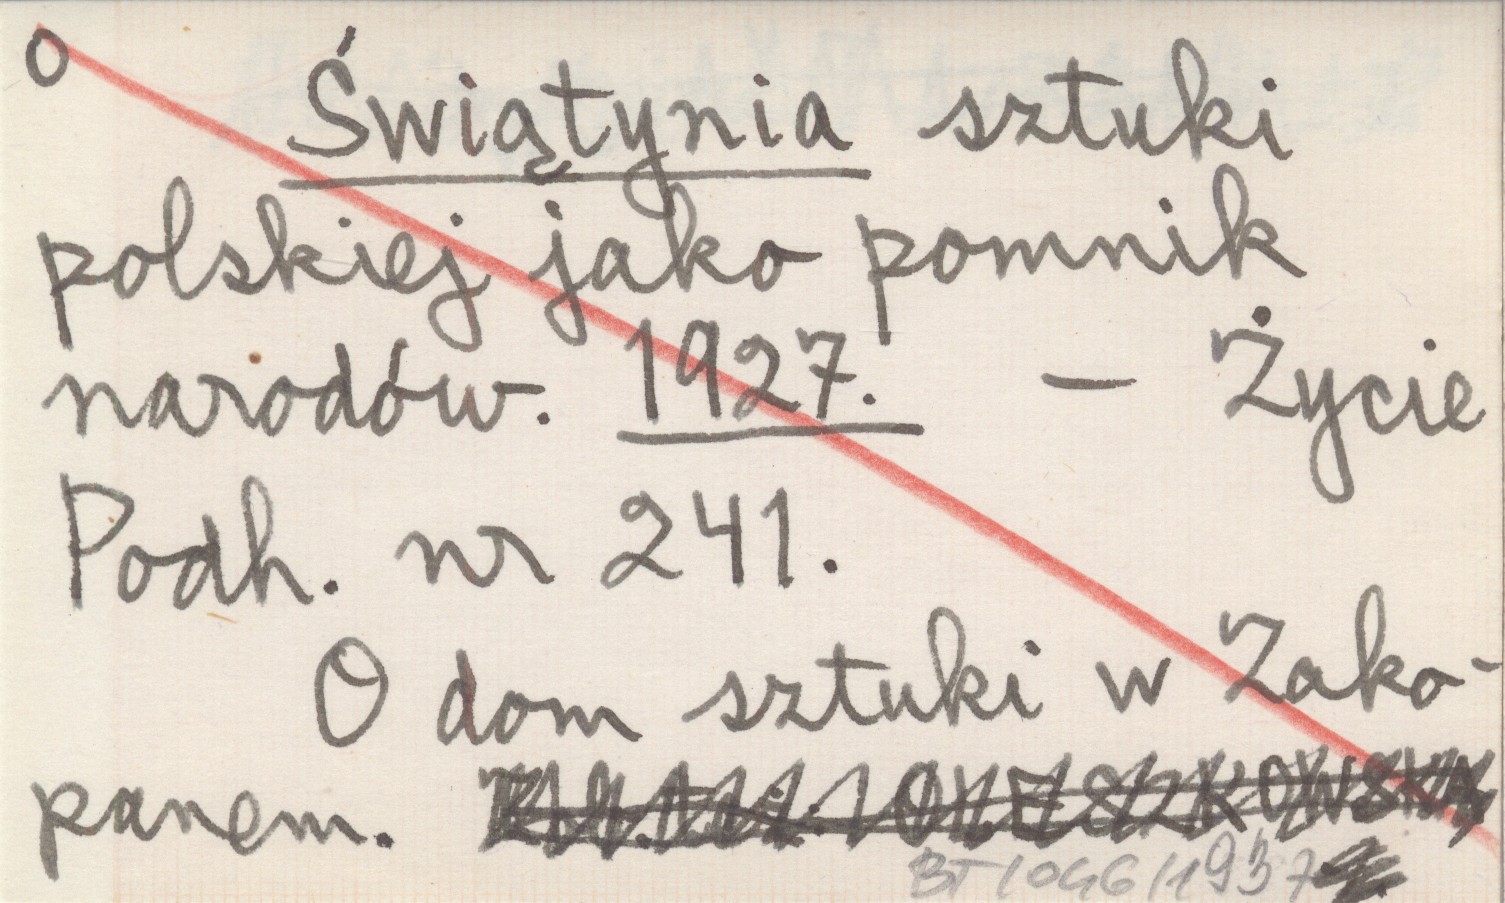 o
Świątynia sztuki
polskiej jako pomnik
narodów. 1927. — Życie
Podh. nr 241.
O dom sztuki w Zako-
panem.
BT/046/1937